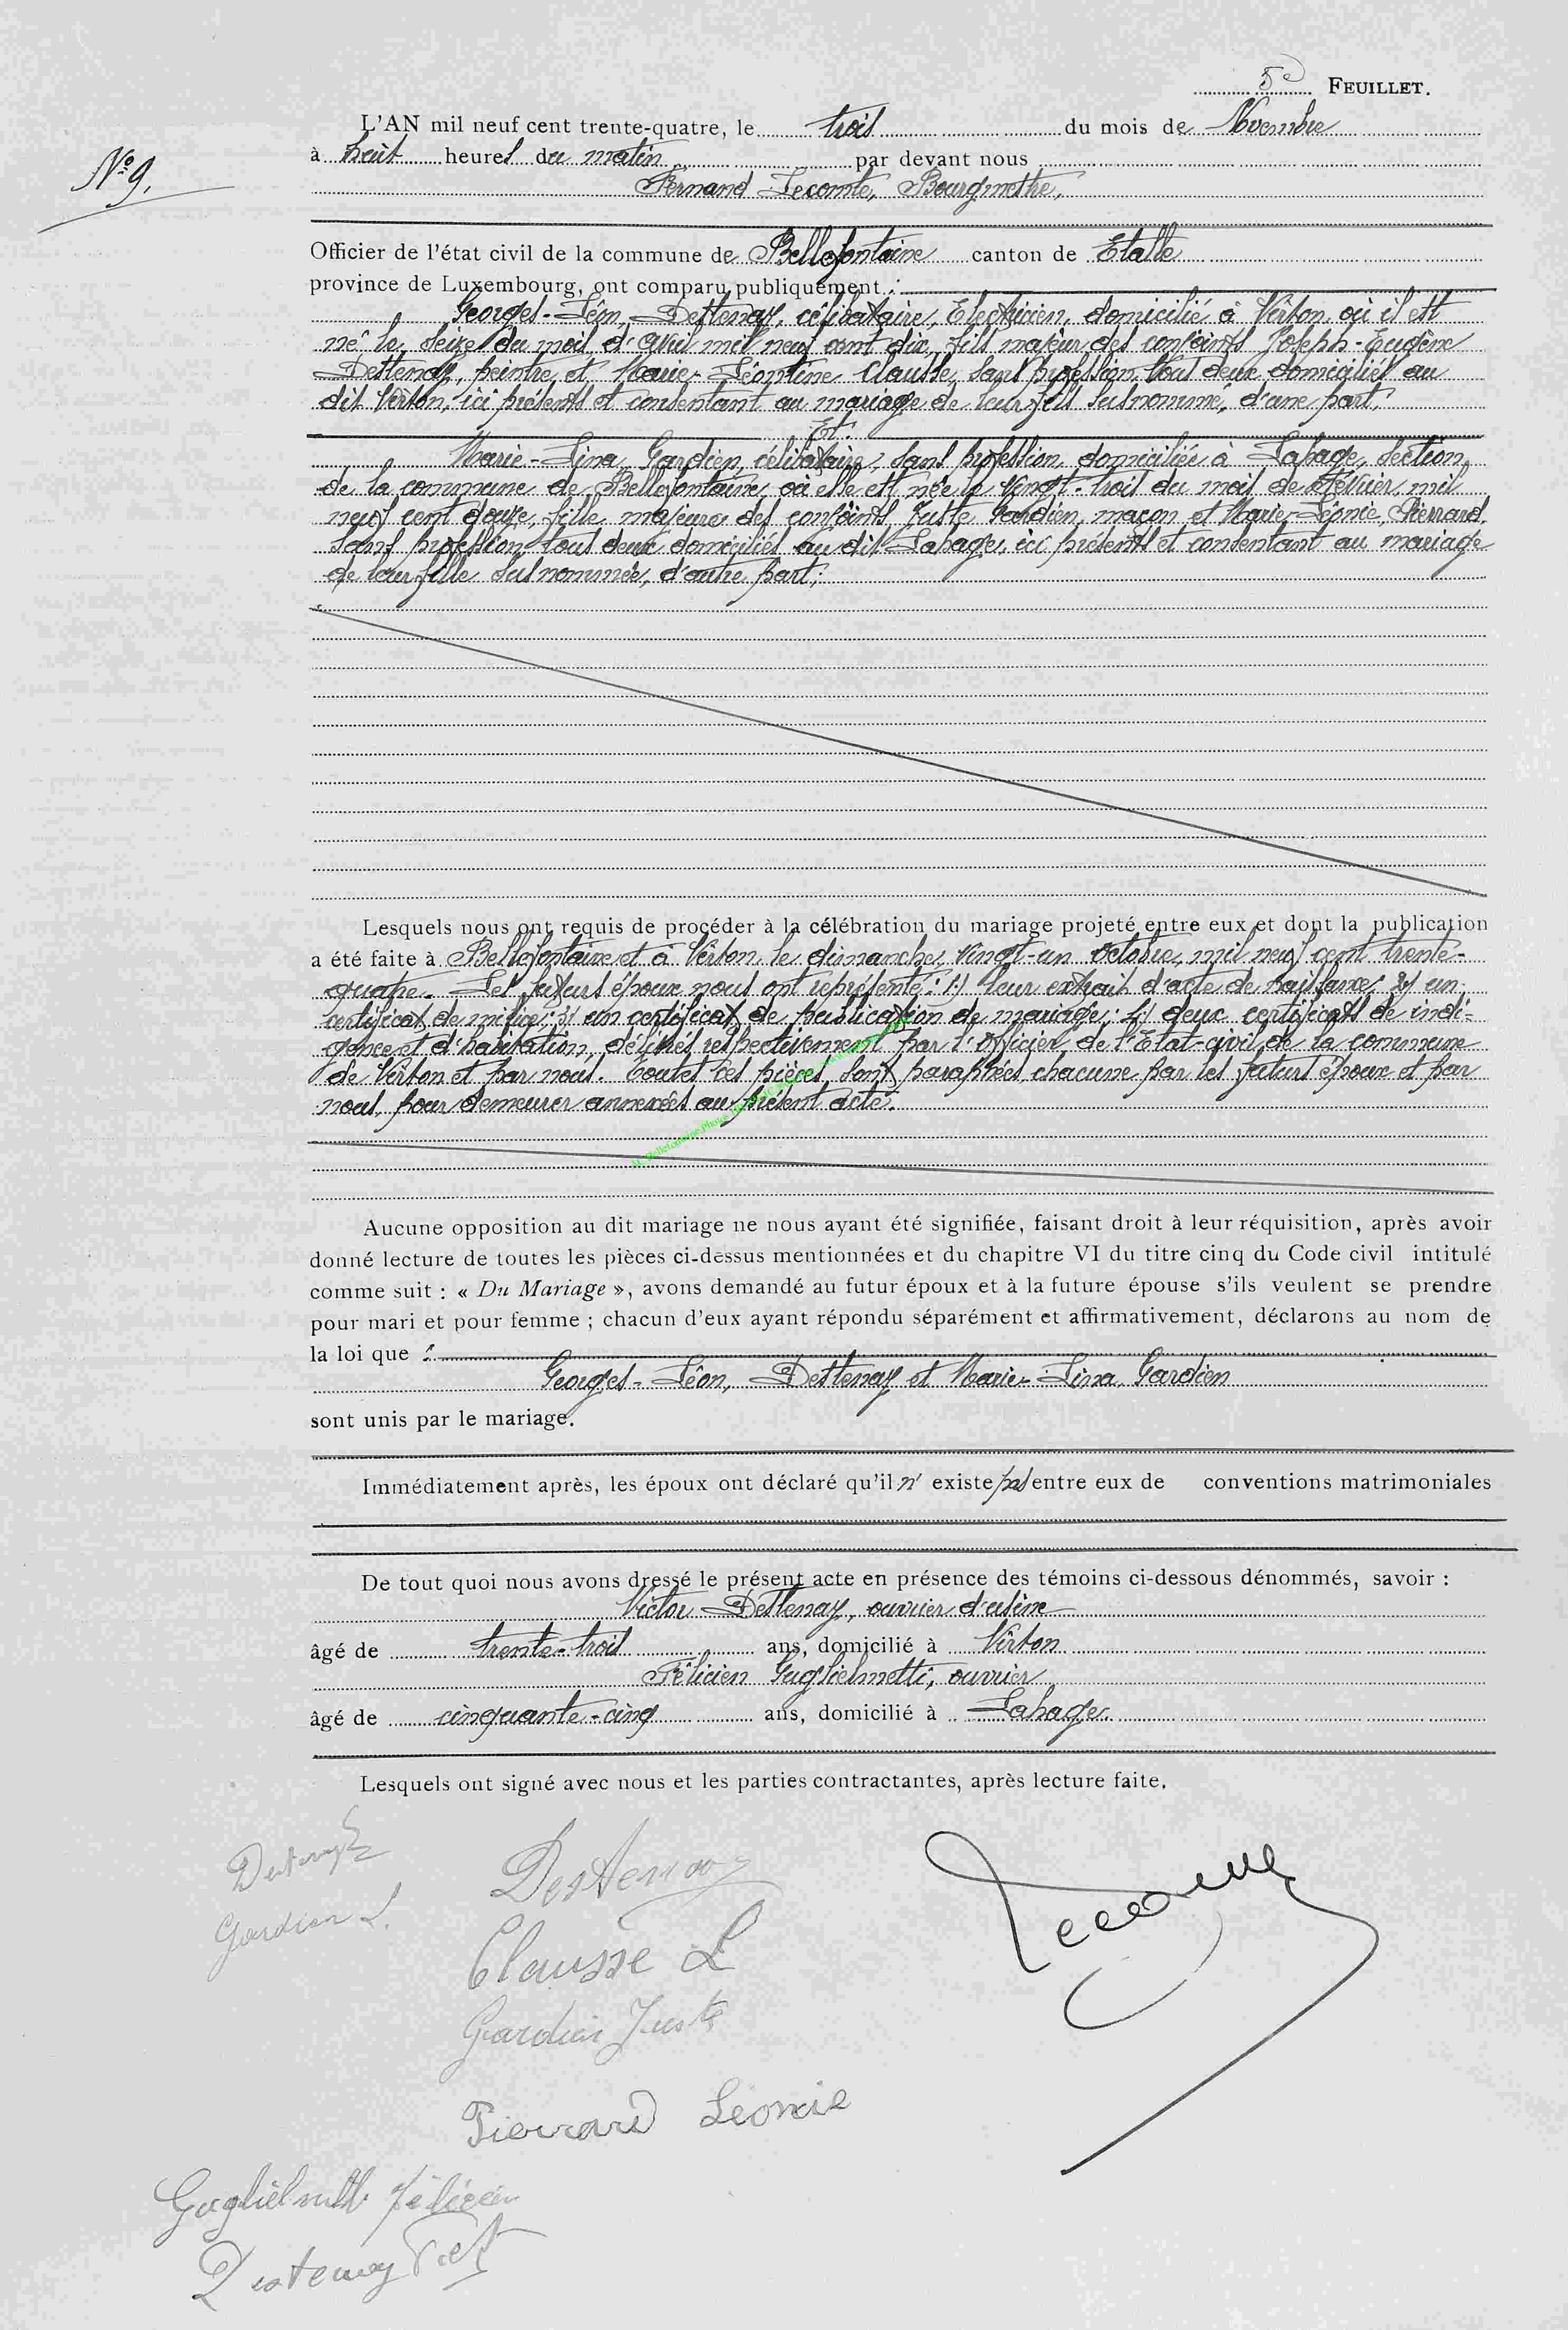 5e FEUILLET.
L'AN mil neuf cent trente-quatre, le trois du mois de Novembre
à huit heures du matin par devant nous
Nº 9.
Fernand Lecomte, Bourgmestre,
Officier de l'état civil de la commune de Bellefontaine canton de Etalle
province de Luxembourg, ont comparu publiquement :
Georges-Léon, Destenay, célibataire, Electricien, domicilié à Virton, où il est
né le seize du mois d'Avril mil neuf cent dix, fils majeur des conjoints Joseph-Eugène
Destenay, peintre, et Marie-Léontine Clausse, sans profession, tous deux domiciliés au
dit Virton, ici présents et consentant au mariage de leur fils susnommé, d'une part;
Et.
Marie-Lina, Gardien, célibataire, sans profession, domiciliée à Lahage, section
de la commune de Bellefontaine, où elle est née le vingt-trois du mois de février, mil
neuf cent douze, fille majeure des conjoints Juste Gardien, maçon et Marie-Léonie, Pierrard,
sans profession, tous deux domiciliés au dit Lahage, ici présents et consentant au mariage
de leur fille susnommée, d'autre part;
Lesquels nous ont requis de procéder à la célébration du mariage projeté entre eux et dont la publication
a été faite à Bellefontaine et à Virton, le dimanche, vingt-un octobre, mil neuf cent trente-
quatre. Les futurs époux nous ont représenté: 1) leur extrait d'acte de naissance; 2) un
certificat de milice; 3) un certificat de publication de mariage; 4) deux certificats de indi-
gence et d'habitation, délivrés respectivement par l'officier de l'Etat-civil de la commune
de Virton et par nous. Toutes ces pièces sont paraphées chacune par les futurs époux et par
nous, pour demeurer annexées au présent acte.
Aucune opposition au dit mariage ne nous ayant été signifiée, faisant droit à leur réquisition, après avoir
donné lecture de toutes les pièces ci-dessus mentionnées et du chapitre VI du titre cinq du Code civil intitulé
comme suit : « Du Mariage », avons demandé au futur époux et à la future épouse s'ils veulent se prendre
pour mari et pour femme ; chacun d'eux ayant répondu séparément et affirmativement, déclarons au nom de
la loi que :
Georges-Léon, Destenay et Marie-Lina, Gardien
sont unis par le mariage.
Immédiatement après, les époux ont déclaré qu'il n' existe pas entre eux de conventions matrimoniales
De tout quoi nous avons dressé le présent acte en présence des témoins ci-dessous dénommés, savoir :
Victor Destenay, ouvrier d'usine
âgé de trente-trois ans, domicilié à Virton
Félicien Guglielmetti, ouvrier
âgé de cinquante-cinq ans, domicilié à Lahage.
Lesquels ont signé avec nous et les parties contractantes, après lecture faite.
Destenay
Destenay
Gardien L.
Clausse L
Lecomte
Gardien Juste
Pierrard Léonie
Guglielmetti Félicien
Destenay Vict